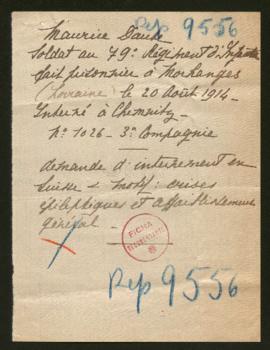 Rep 9556
Maurice
Soldat au 79e Régiment d'Infanterie
fait prisonnier à Morhanges
(Lorraine) le 20 Août 1914 -
Interné à Chemnitz -
No 1026 - 3e Compagnie
demande d'internement en
Suisse - Motif : crises
épileptiques et affaiblissement
général -
Rep 9556